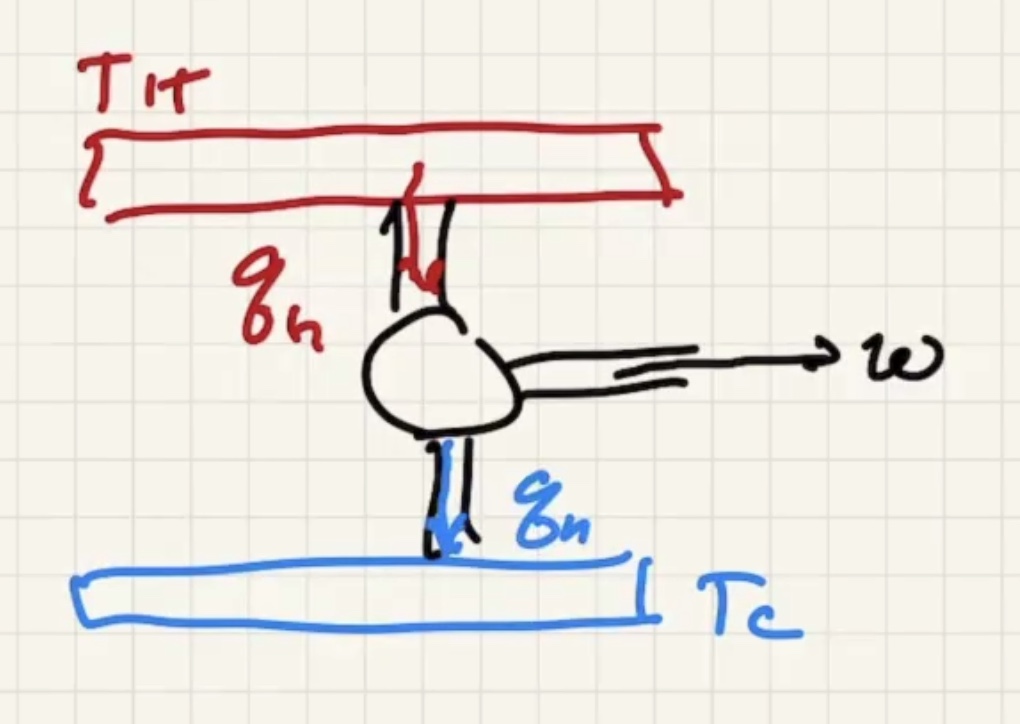 TH
qh
w
qn
Tc